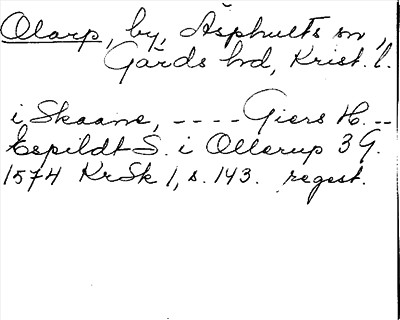 Olarp, by, Åsphults sn,
Gärds hd, Krist. l.
i Skaane, ---- Giers H. --
Espildt S. i Ollerup 3 G.
1574 KrSk 1, s. 143. regest.